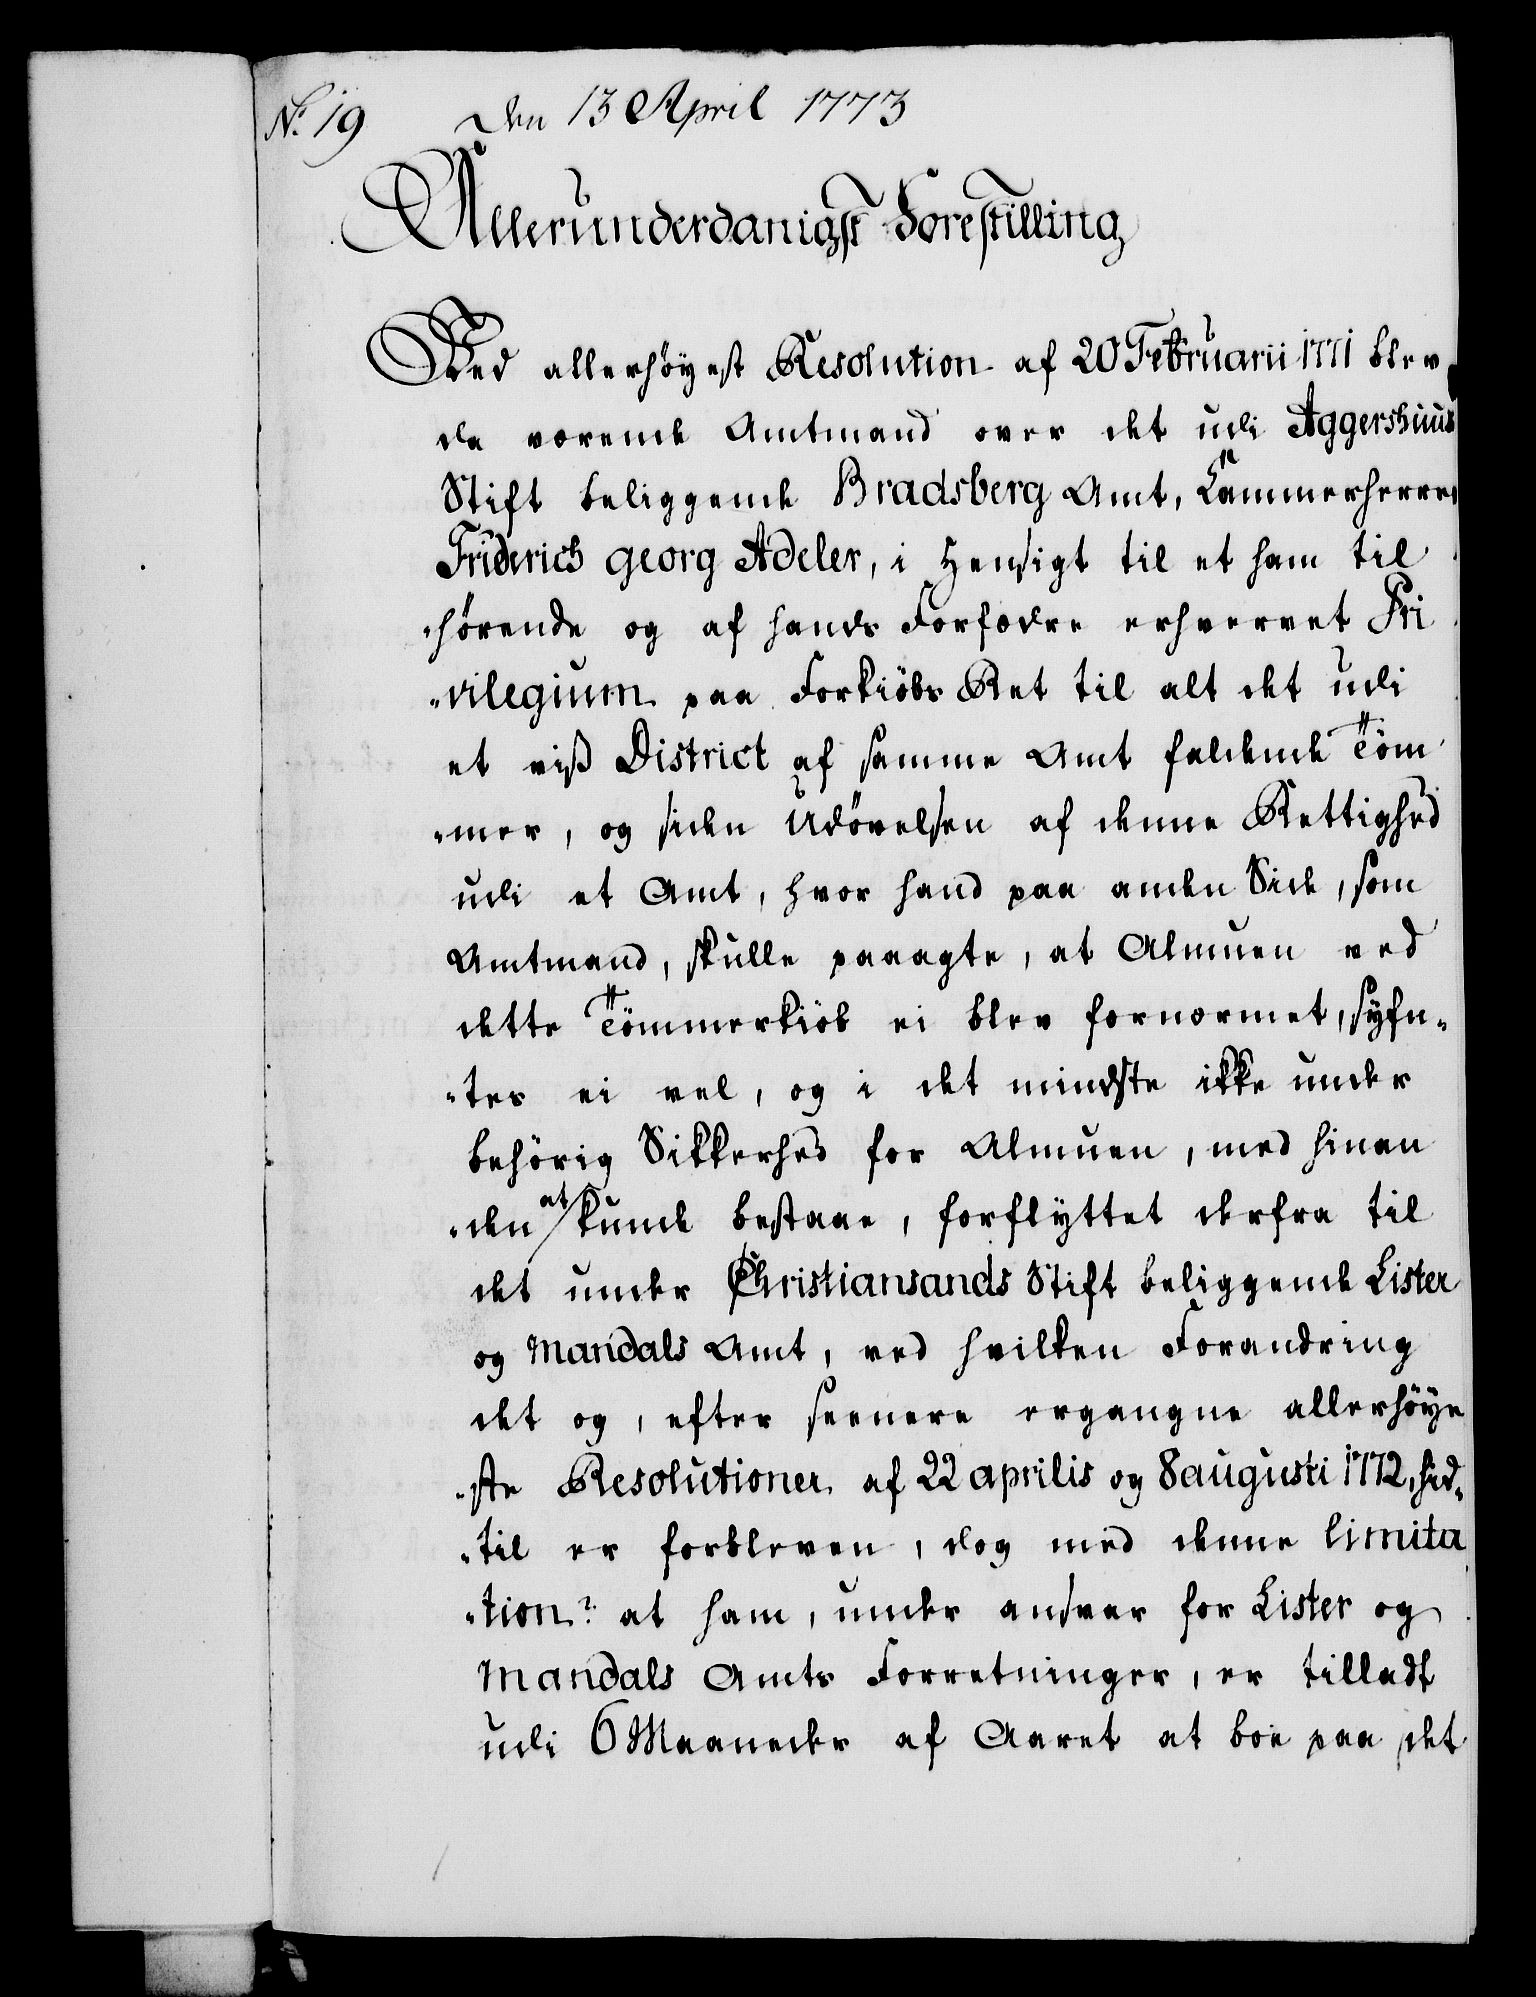 No. 19 Den 13 April 1773
Allerunderdanigst Forestilling
Ved allerhöyest Resolution af 20 Februarii 1771 blev
da værende Amtmand over det udi Aggershuus
Stift beliggende Bradsberg Amt, Cammerherre
Friderich Georg Adeler, i Hensigt til et ham til
„hørende og af hands Forfædre erhvervet Pri
„vilegium paa Forkiöbs Ret til alt det udi
et viß District af samme Amt faldende Töm
„mer, og siden Udövelsen af denne Rettighed
udi et Amt, hvor hand paa anden Side, som
Amtmand, skulle paaagte, at Almuen ved
dette Tömmerkiöb ei blev fornærmet, syfn„
„tes ei vel, og i det mindste ikke under
behörig Sikkerhed for Almuen, med hinan
„den at kunde bestaae, forflyttet derfra til
det under Christiansands Stift beliggende Lister
og Mandals Amt, ved hvilken Forandring
det og, efter seenere ergangne allerhöye
„ste Resolutioner af 22 aprilis og 8 augusti 1772, hid„
„til er forbleven, dog med denne limita
„tion: at ham, under ansvar for Lister og
Mandals Amts Forretninger, er tilladt
udi 6 Maaneder af Aaret at boe paa det